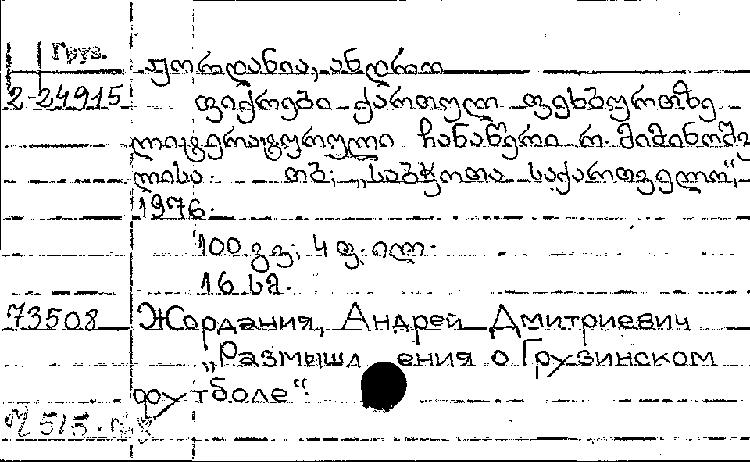 Груз.
ჟორდანია, ანდრო
2-24915 ფიქრები ქართულ ფეხბურთზე
ლიტერატურული ჩანაწერი რ. მიმინოშვი
ლისა. თბ; „საბჭოთა საქართველო“,
1976.
100 გვ; 4 ფ. ილ.
16 სმ.
73508 Жордания, Андрей Дмитриевич
„Размышления о Грузинском
футболе“.